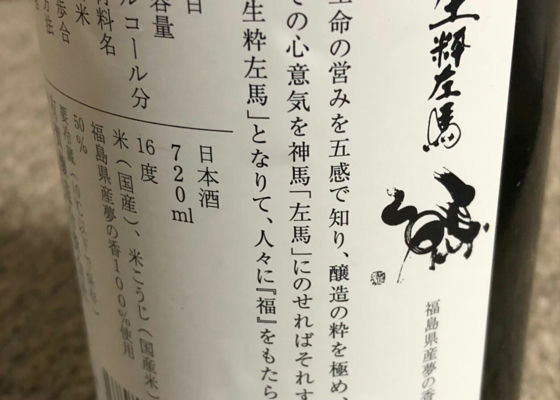 生粋左馬
福島県産夢の香
生命の営みを五感で知り、醸造の粋を極め、
その心意気を神馬「左馬」にのせればそれす
生粋左馬」となりて、人々に『福』をもたら
日
日本酒
容量
720ml
ルコール分
16度
材料名
米(国産)、米こうじ(国産米)
米
福島県産夢の香100%使用
歩合
50%
方法
要冷蔵